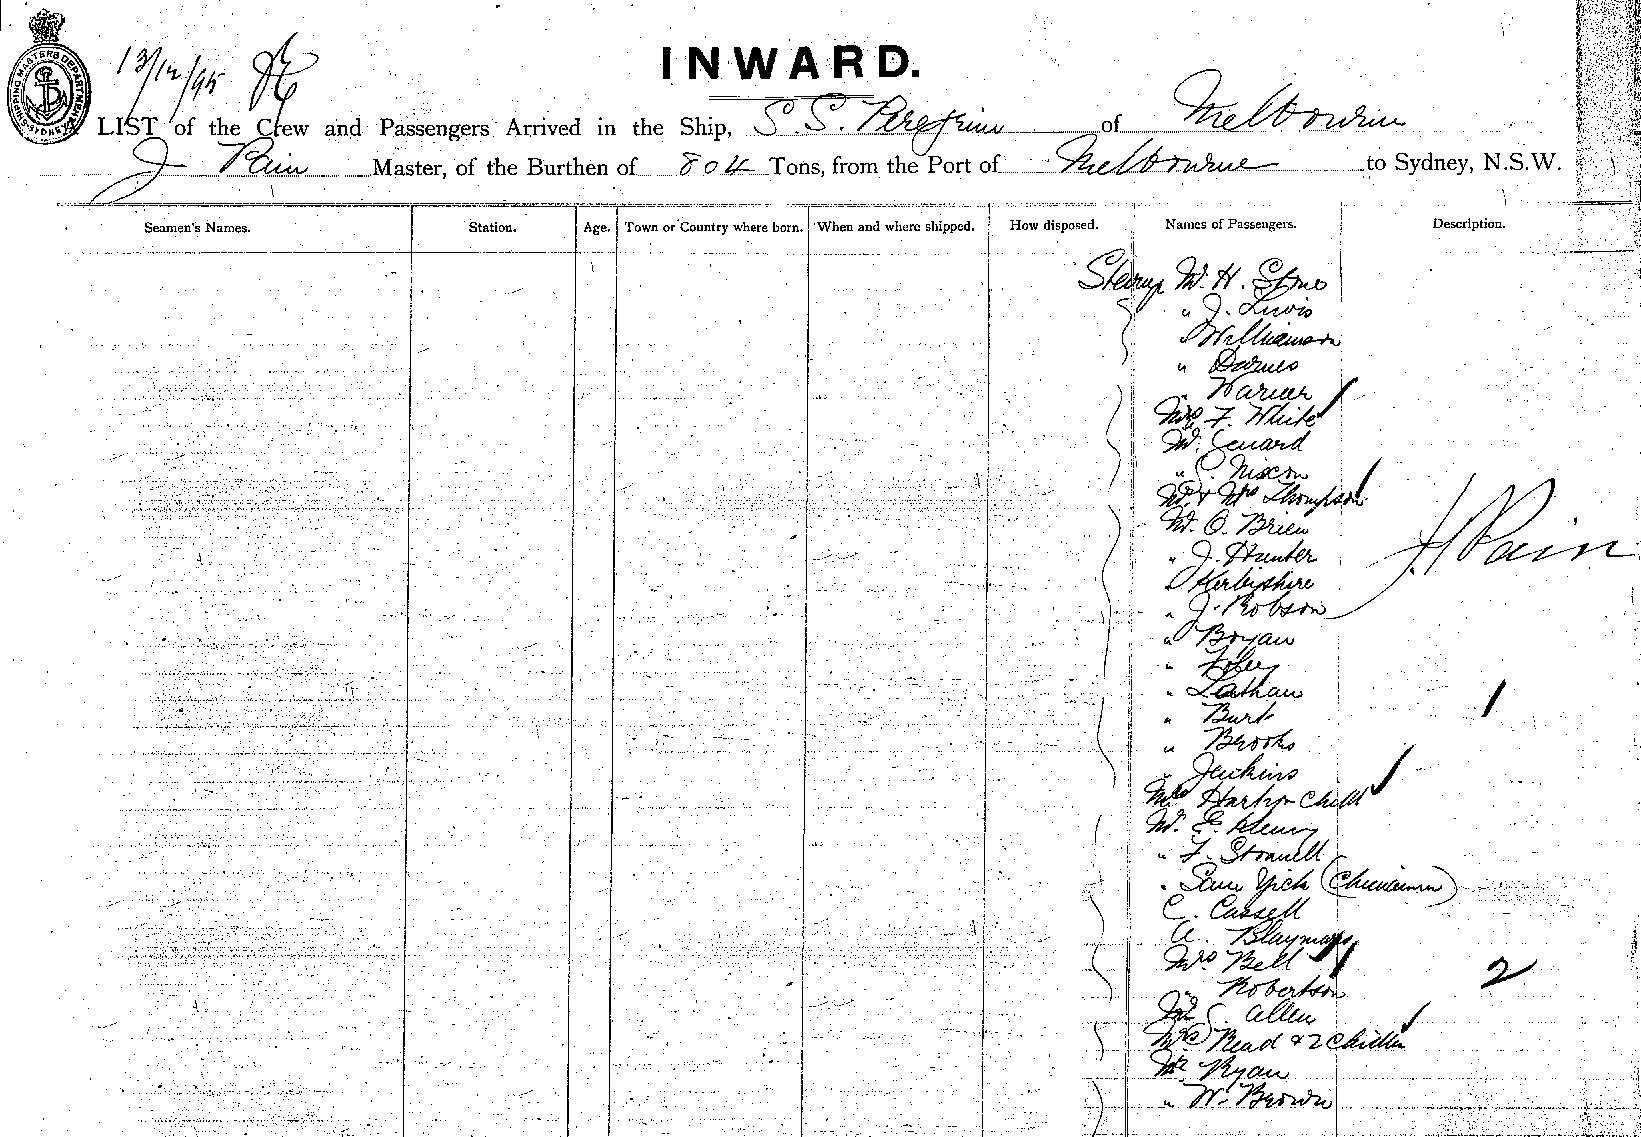 SHIPPING MASTERS DEPARTMENT SYDNEY
13/12/95
INWARD.
LIST of the Crew and Passengers Arrived in the Ship, S.S. Peregrine of Melbourne
J Pain Master, of the Burthen of 804 Tons, from the Port of Melbourne to Sydney, N.S.W.
Seamen's Names. Station. Age. Town or Country where born. When and where shipped. How disposed. Names of Passengers. Description.
Steerage Mr. H. Stone
" J. Lewis
Williamson
" Barnes
" Warier
Mrs F. White
Mr.
" Nixon
Mr & Mrs Thompson
Mr. O. Brien
" J. Hunter
J. Pain
Kerbyshire
" J. Robson
" Bryan
" Foley
" Lathan
1
" Burt
" Brooks
" Jenkins
Mrs Child
Mr. E. Henry
" F. Stonnell
" Yick (Chinaman)
C. Cassell
A.
Mrs. Bell
2
" Robertson
Mr S. Allen
Mrs Read & 2 Children
Mr Ryan
" W. Brown